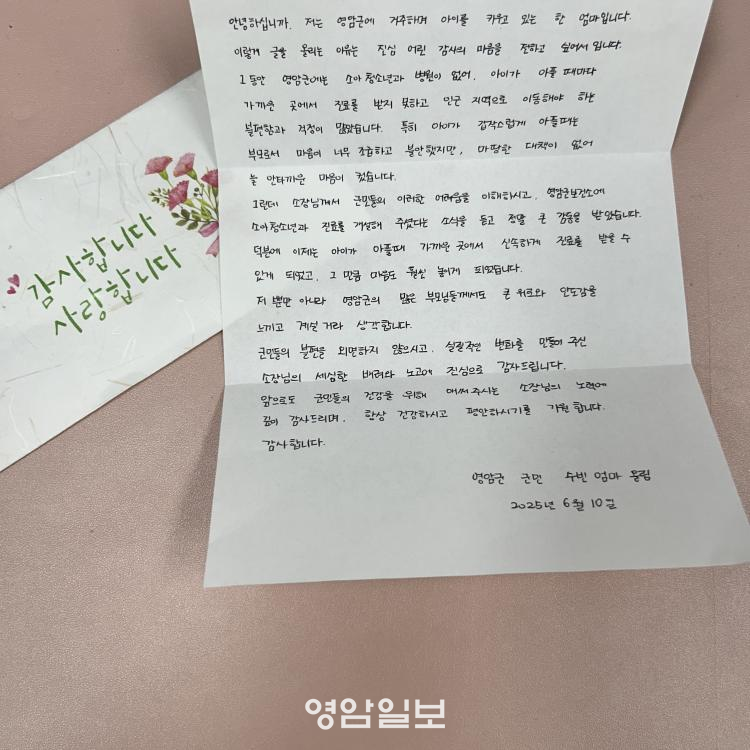 안녕하십니까. 저는 영암군에 거주하며 아이를 키우고 있는 한 엄마입니다.
이렇게 글을 올리는 이유는 진심 어린 감사의 마음을 전하고 싶어서 입니다.
그동안 영암군에는 소아청소년과 병원이 없어, 아이가 아플 때마다
가까운 곳에서 진료를 받지 못하고 인근 지역으로 이동해야 하는
불편함과 걱정이 많았습니다. 특히 아이가 갑작스럽게 아플때는
부모로서 마음이 너무 조급하고 불안했지만, 마땅한 대책이 없어
늘 안타까운 마음이 컸습니다.
그런데 소장님께서 군민들의 이러한 어려움을 이해하시고, 영암군보건소에
소아청소년과 진료를 개설해 주셨다는 소식을 듣고 정말 큰 감동을 받았습니다.
덕분에 이제는 아이가 아플때 가까운 곳에서 신속하게 진료를 받을 수
있게 되었고, 그 만큼 마음도 훨씬 놓이게 되었습니다.
저 뿐만 아니라 영암군의 많은 부모님들께서도 큰 위로와 안도감을
느끼고 계실 거라 생각합니다.
군민들의 불편을 외면하지 않으시고, 실질적인 변화를 만들어 주신
소장님의 세심한 배려와 노고에 진심으로 감사드립니다.
앞으로도 군민들의 건강을 위해 애써주시는 소장님의 노력에
깊이 감사드리며, 항상 건강하시고 평안하시기를 기원합니다.
감사합니다.
영암군 군민 수빈 엄마 올림
2025년 6월 10일
감사합니다
사랑합니다
영암일보